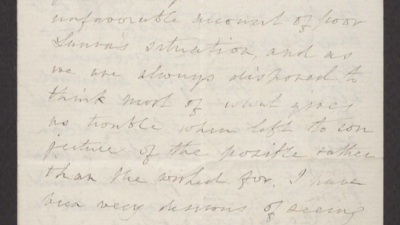 unfavorable account of poor
Laura's situation, and as
we are always disposed to
think most of what gives
us trouble when left to con
jecture of the posible rather
than the wished for. I have
been very desirous of seeing